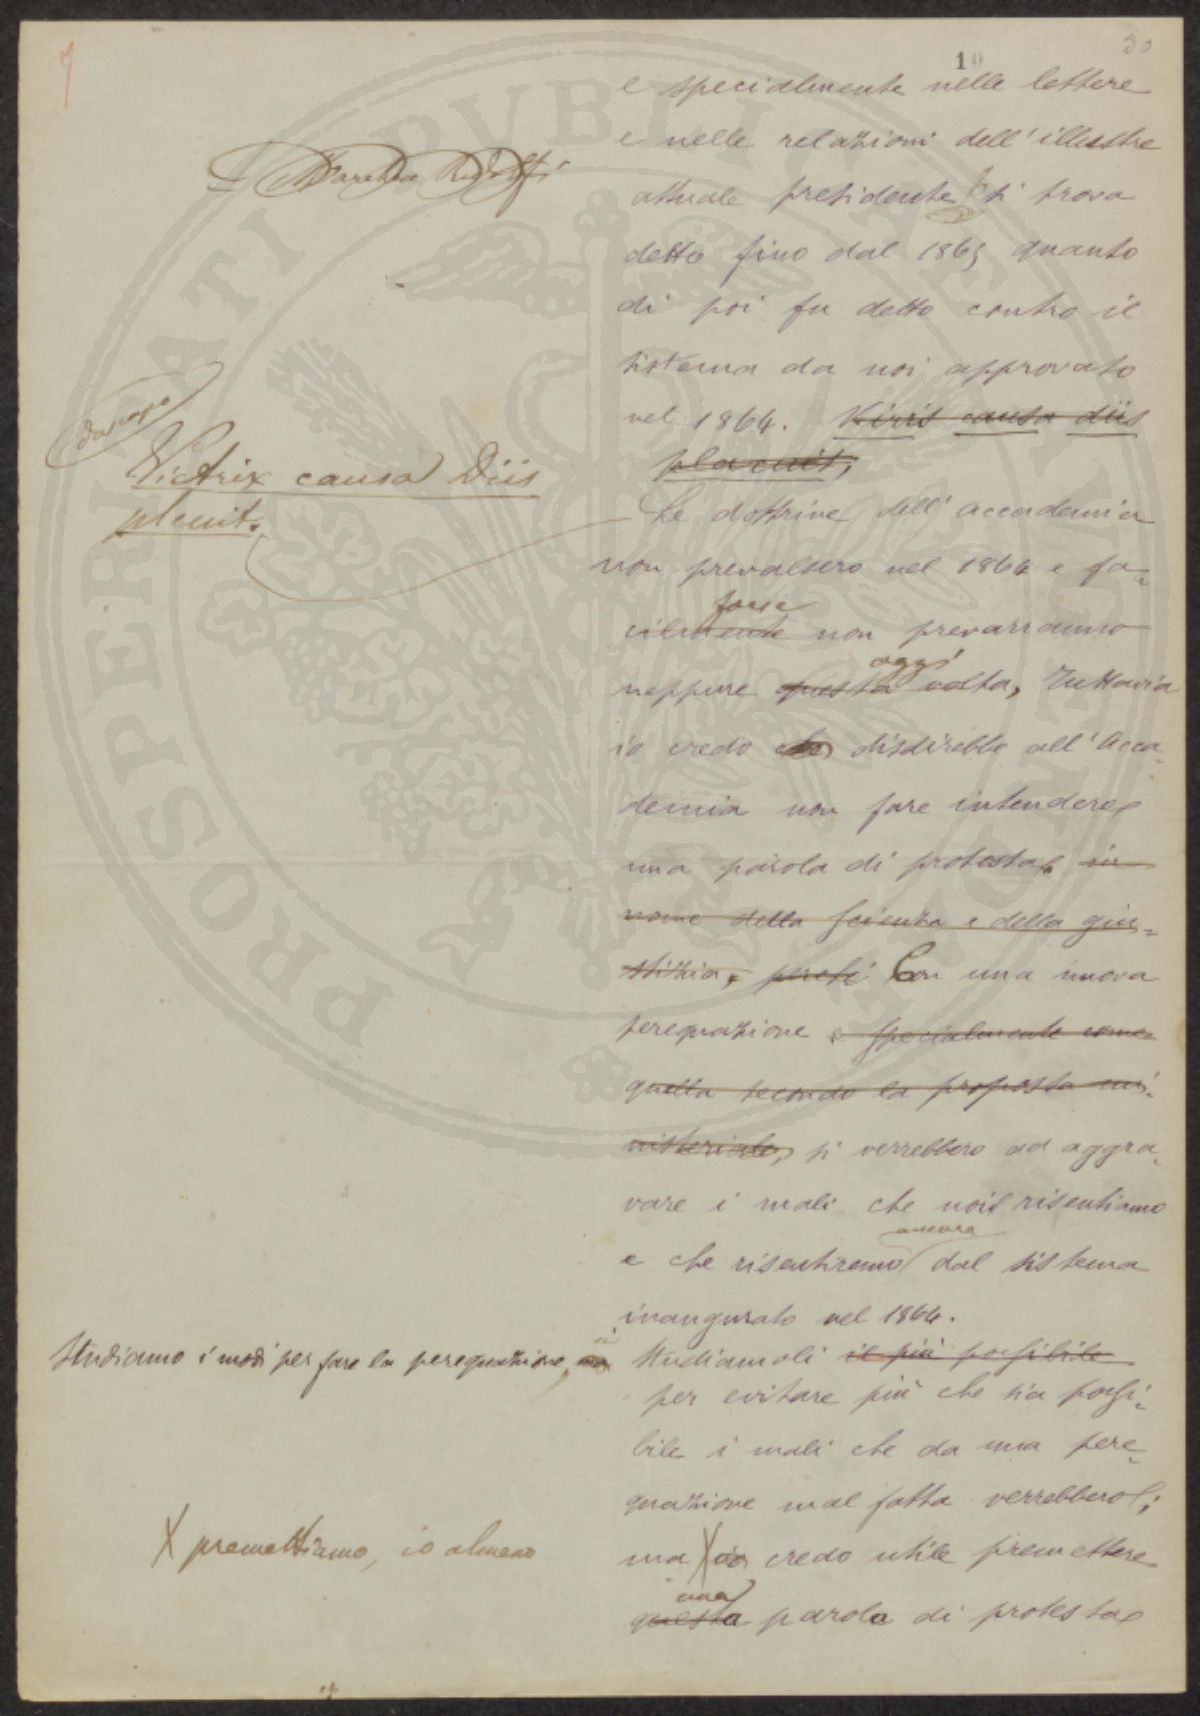 10
30
e specialmente nelle lettere
e nelle relazioni dell'illustre
attuale presidente si trova
detto fino dal 1865 quanto
di poi fu detto contro il
sistema da noi approvato
nel 1864. Victrix causa diis
placuit,
da capo
Victrix causa Diis
placuit.
Le dottrine dell'accademia
non prevalsero nel 1864 e fa-
forse
cilmente non prevarranno
oggi
neppure questa volta, tuttavia
io credo che disdirebbe all'Acca-
demia non fare intendere
una parola di protesta in
nome della scienza e della giu-
stizia, perché Con una nuova
perequazione e specialmente come
quella secondo la proposta mi-
nisteriale, si verrebbero ad aggra-
vare i mali che noi risentiamo
ancora
e che risentiremo dal sistema
inaugurato nel 1864.
Studiamo i modi per fare la perequazione, ma
Studiamoli il più possibile
per evitare più che sia possi-
bile i mali che da una pere-
quazione mal fatta verrebbero;
X premettiamo, io almeno
ma X io credo utile premettere
una
questa parola di protesta
PROSPERITATI PUBLICAE AUGENDAE